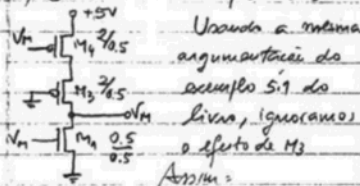 +5V
V_M M_4 2/0.5
M_3 2/0.5
V_M
V_M M_1 0.5/0.5
Usando a mesma
argumentação do
exemplo 5.1 do
livro, ignoramos
o efeito de M3
Assim: